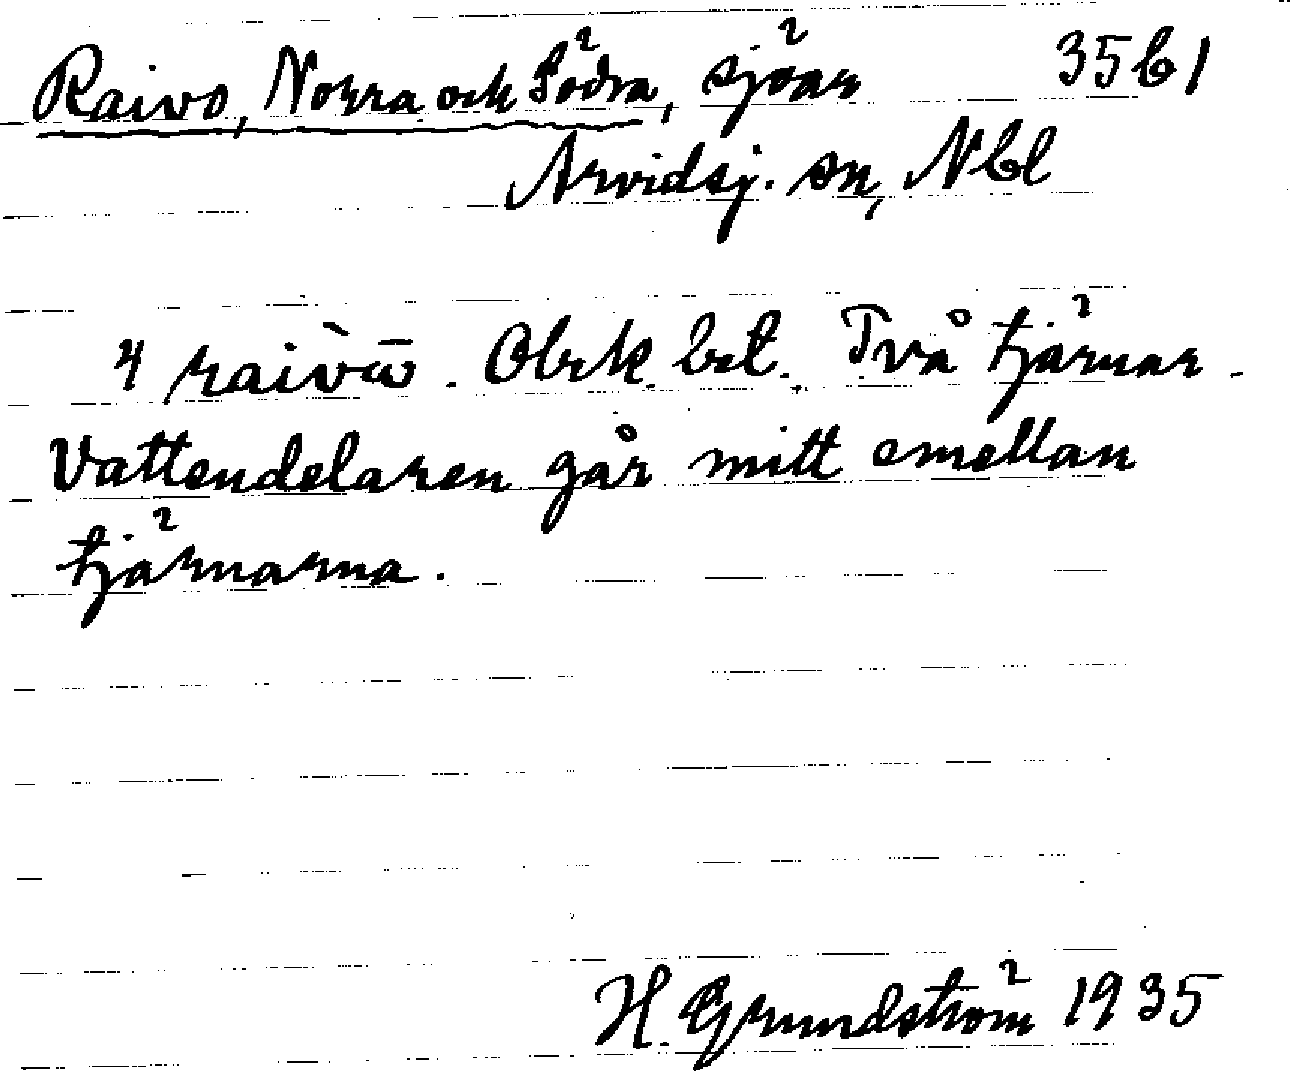 Raivo, Norra och Södra, sjöar 35b1
Arvidsj. sn, Nbl
4 raìvω̄. Obek. bet. Två tjärnar.
Vattendelaren går mitt emellan
tjärnarna.
H. Grundström 1935